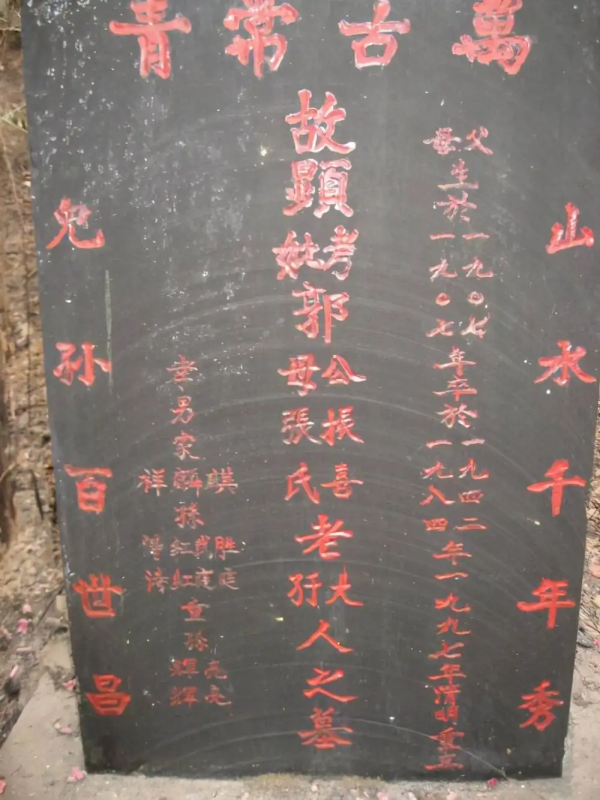 萬古常青
山水千年秀
父母生於一九〇七一九〇七年卒於一九四二一九八四年一九九七年清明重立
故顯考妣郭公母振張喜氏老大孺人之墓
孝男家麒麟祥
孫胜
紅
紅
童孫元
輝
輝
兒孙百世昌